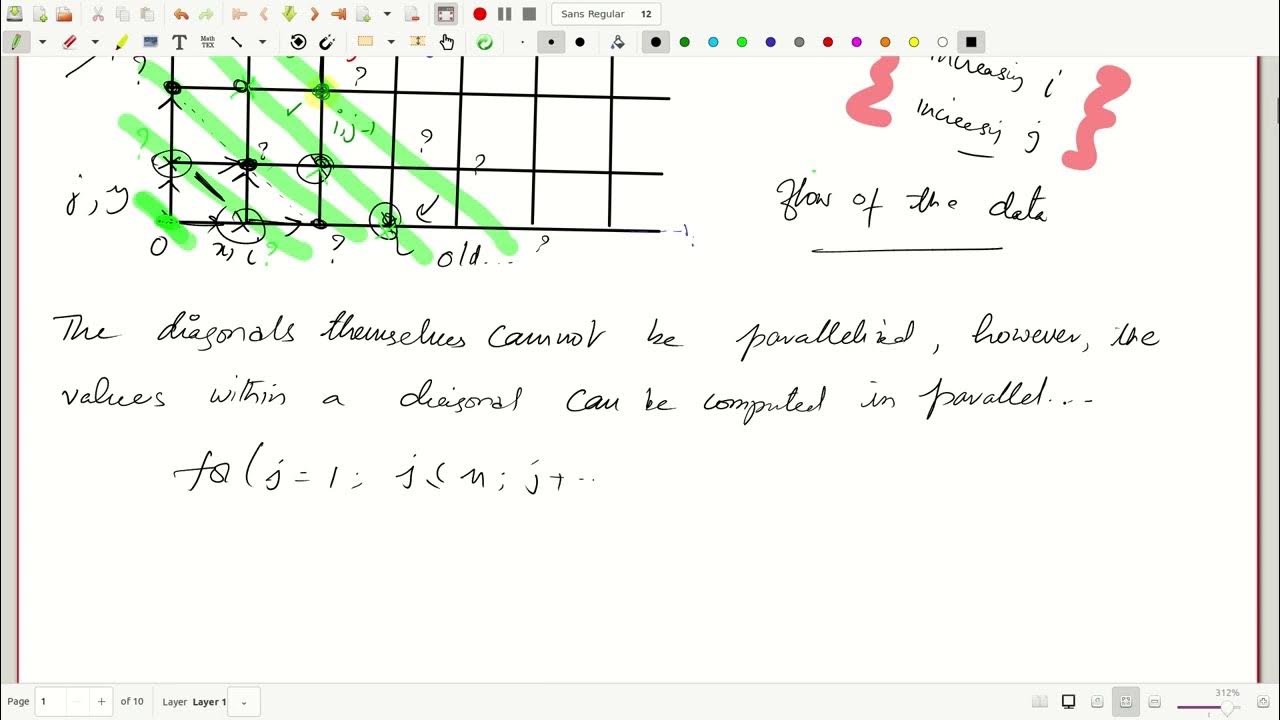 Sans Regular 12
Math
TEX
?
?
increasing i
increasing j
i, j-1
?
?
?
?
j, y
0
x, i
?
?
old...
?
flow of the data
The diagonals themselves cannot be parallelized, however, the
values within a diagonal can be computed in parallel...
for (j = 1; j < n; j + ..
Page 1 of 10 Layer Layer 1
312%